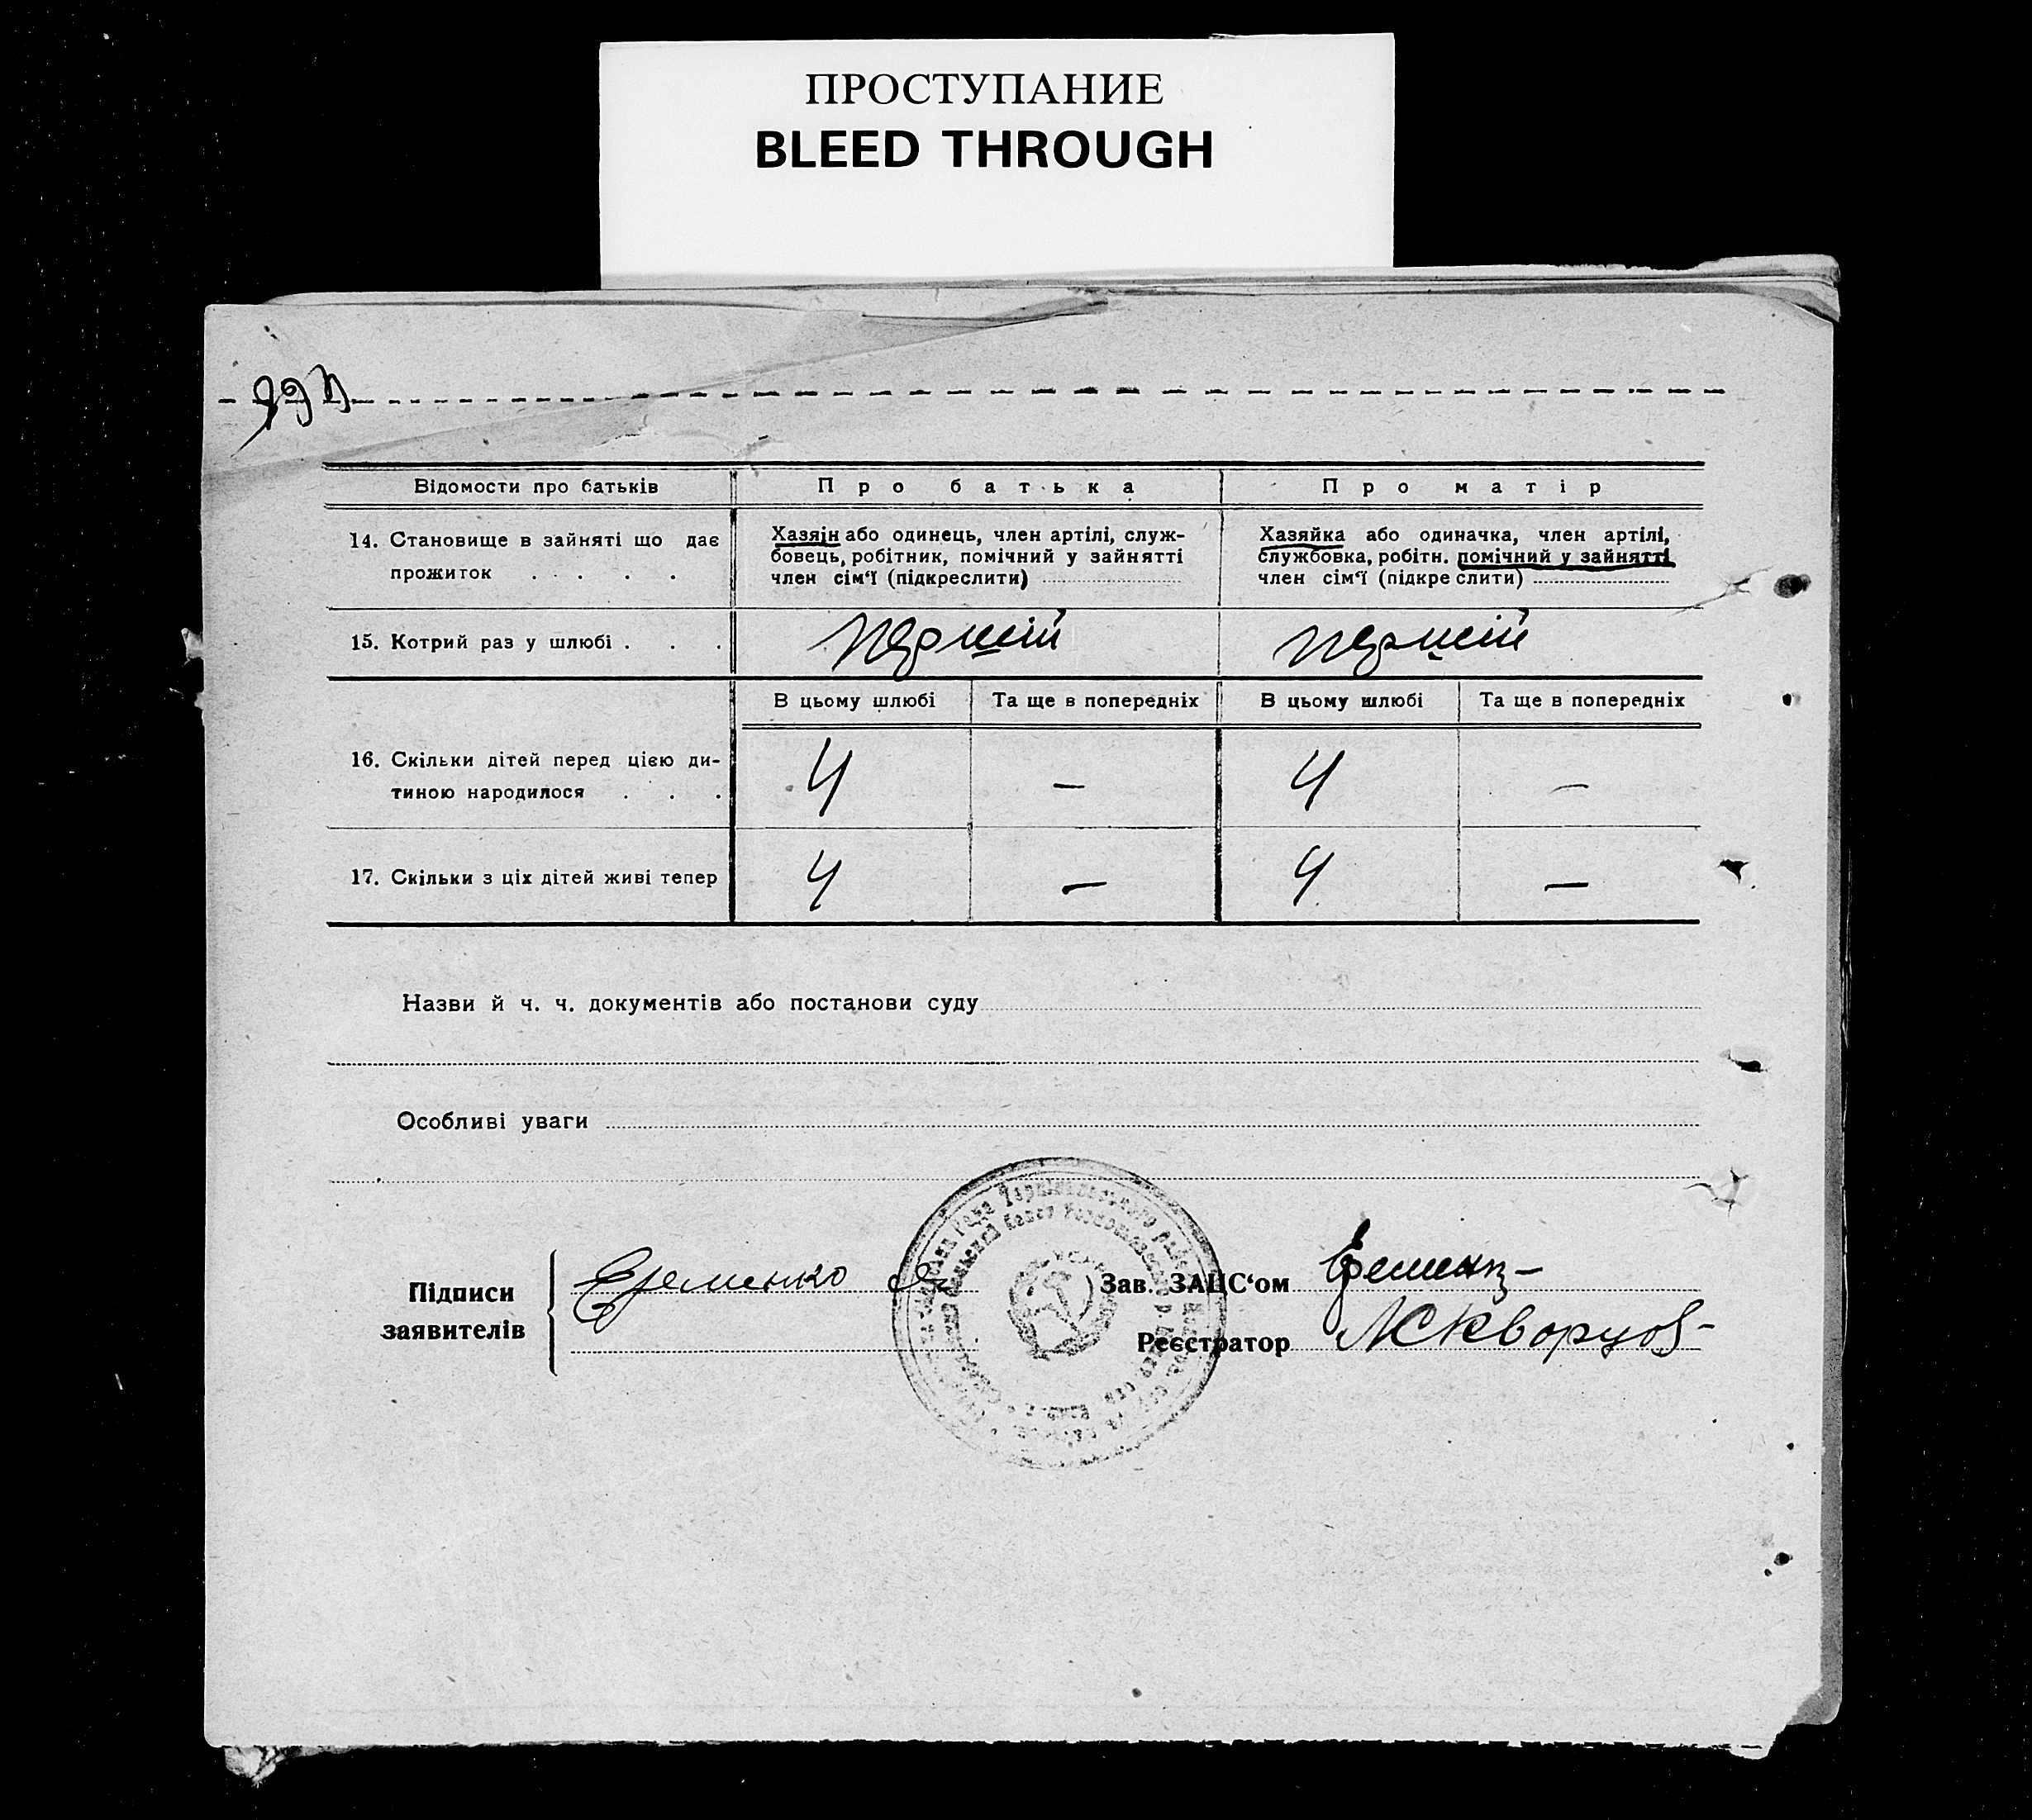 ПРОСТУПАНИЕ
BLEED THROUGH
Відомости про батьків Про батька Про матір
14. Становище в зайняті що дає прожиток . . . .
Хазяїн або одинець, член артілі, служ-
бовець, робітник, помічний у зайнятті
член сім'ї (підкреслити)
Хазяйка або одиначка, член артілі,
службовка, робітн. помічний у зайнятті
член сім'ї (підкреслити)
15. Котрий раз у шлюбі . . . першій першій
В цьому шлюбі Та ще в попередніх В цьому шлюбі Та ще в попередніх
16. Скільки дітей перед цією ди-
тиною народилося . . . 4 — 4 —
17. Скільки з ціх дітей живі тепер 4 — 4 —
Назви й ч. ч. документів або постанови суду
Особливі уваги
Підписи
заявителів
Еременко
Зав. ЗАЦС'ом
Реєстратор МСкворцов